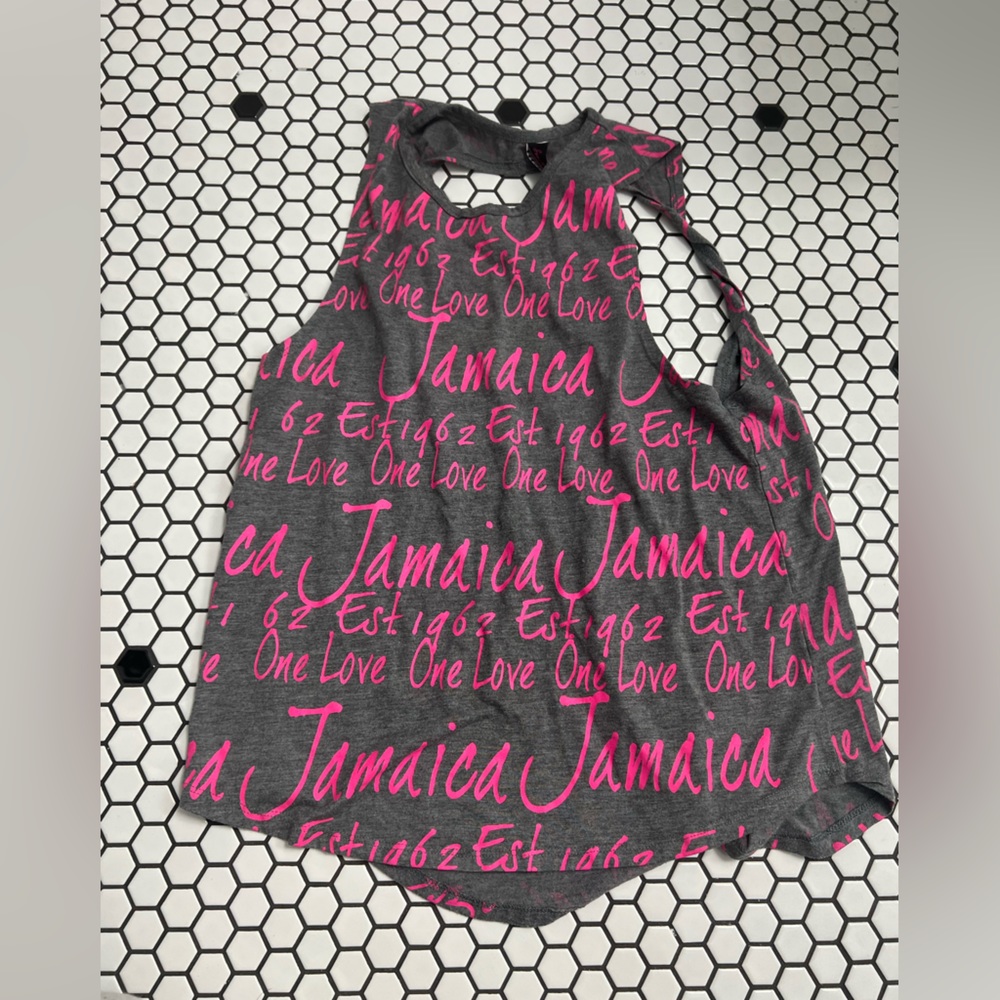 Jamaica Jam
Est 1962 Est 1962 Es
Love One Love One Love O
ica Jamaica J
62 Est 1962 Est 1962 Est 1
ne Love One Love One Love One Love
ca Jamaica Jamaica
62 Est 1962 Est 1962 Est 19
e One Love One Love One Love One Lov
ca Jamaica Jamaica
Est 1962 Est 1962 E